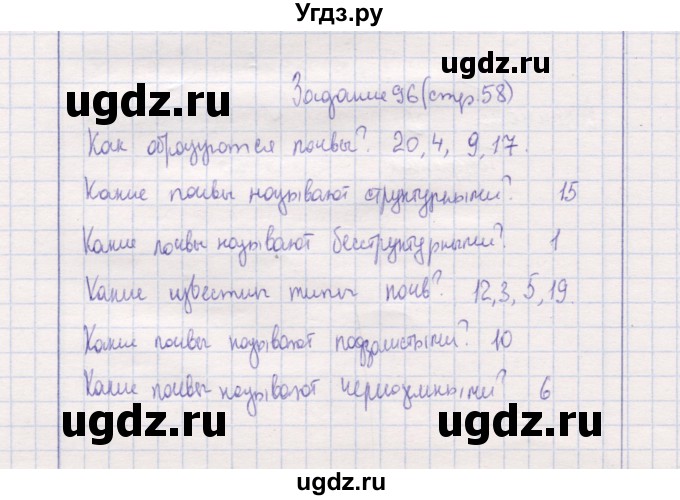 Угдз.ру
Задание 96 (стр. 58)
Как образуются почвы? 20, 4, 9, 17.
Какие почвы называют структурными? 15
Какие почвы называют бесструктурными? 1
Какие известны типы почв? 12, 3, 5, 19.
Какие почвы называют подзолистыми? 10
Какие почвы называют чернозёмными? 6
ugdz.ru
ugdz.ru
ugdz.ru
ugdz.ru
ugdz.ru
ugdz.ru
ugdz.ru